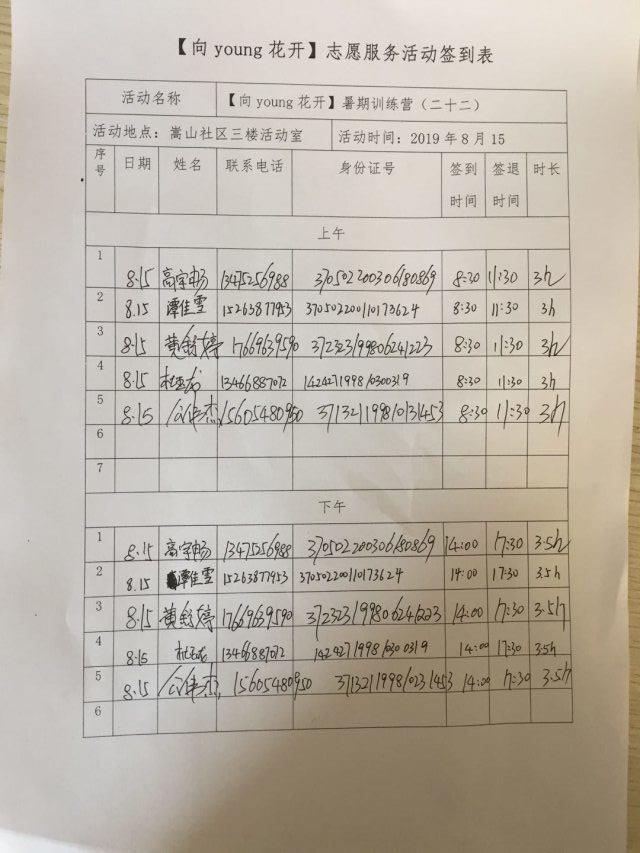 【向 young 花开】志愿服务活动签到表
活动名称 【向 young 花开】暑期训练营（二十二）
活动地点：嵩山社区三楼活动室 活动时间：2019 年 8 月 15
序号 日期 姓名 联系电话 身份证号 签到时间 签退时间 时长
上午
1 8.15 高宇畅 13475256988 370502200306180869 8:30 11:30 3h
2 8.15 谭佳雪 15263877953 370502200110173624 8:30 11:30 3h
3 8.15 黄 婷 17669639590 372323199806241223 8:30 11:30 3h
4 8.15 杜 13466887072 142427199810300319 8:30 11:30 3h
5 8.15 公伟杰 15605480950 371321199810131453 8:30 11:30 3h
6
7
下午
1 8.15 高宇畅 13475256988 370502200306180869 14:00 17:30 3.5h
2 8.15 谭佳雪 15263877953 370502200110173624 14:00 17:30 3.5h
3 8.15 黄 婷 17669639590 372323199806241223 14:00 17:30 3.5h
4 8.15 杜 13466887072 142427199810300319 14:00 17:30 3.5h
5 8.15 公伟杰 15605480950 371321199810231453 14:00 17:30 3.5h
6